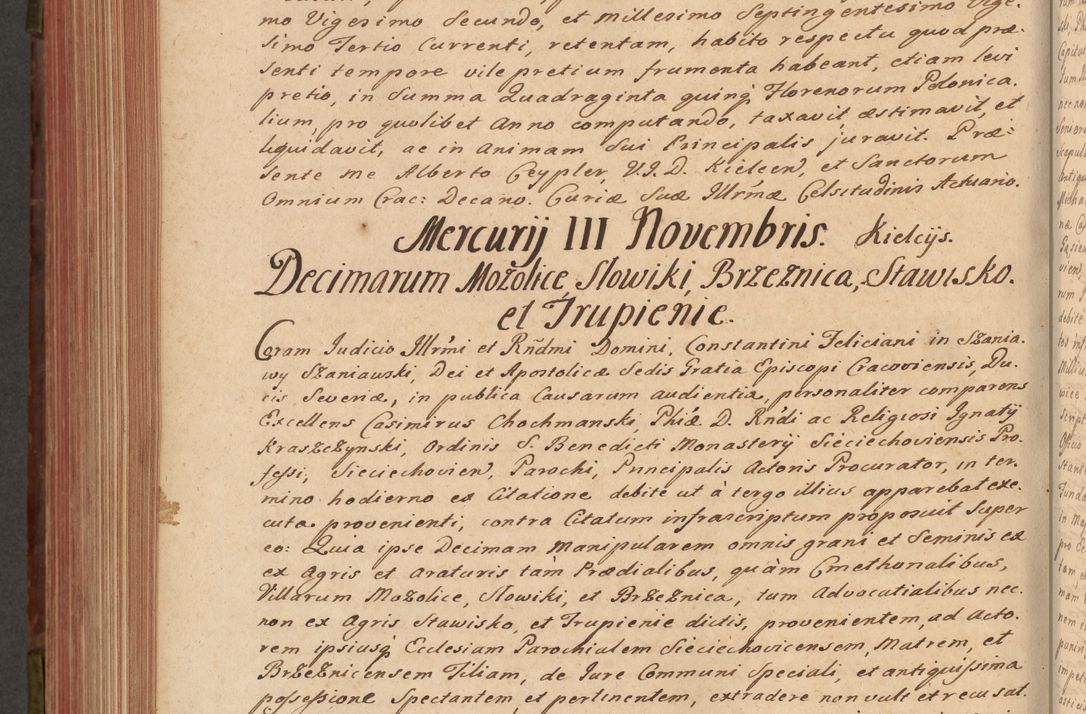 mo Vigesimo Secundo, et Millesimo Septingentesimo Vige-
simo Tertio Currenti, retentam, habito respectu quod præ-
senti tempore vile pretium frumenta habeant, etiam levi
pretio, in Summa Quadraginta quinq́ Florenorum Polonica-
lium, pro quolibet Anno computando, taxavit æstimavit, et
liquidavit, ac in Animam Sui Principalis juravit. Præ-
sente me Alberto Ceypler, V.I.D. Kielcen, et Sanctorum
Omnium Crac: Decano. Curiæ Suæ Illrm̃æ Celsitudinis Actuario.
Mercurij III Novembris. Kielcijs.
Decimarum Mozolice, Slowiki, Brzeznica, Stawisko.
et Trupienie.
Coram Judicio Illrm̃i et Rñdmi Domini, Constantini Feliciani in Szania-
wy Szaniawski, Dei et Apostolicæ Sedis Gratia Episcopi Cracoviensis, Du-
cis Severiæ, in publica Causarum audientia, personaliter comparens
Excellens Casimirus Chochmanski, Phiæ D. Rńdi ac Religiosi Ignatij
Kraszczynski, Ordinis S. Benedicti Monasterij Sieciechoviensis Pro-
fessi, Sieciechovien, Parochi, Principalis Actoris Procurator, in ter-
mino hodierno ex Citatione debite ut à tergo illius apparebat exe-
cuta provenienti, contra Citatum infrascriptum proposuit Super
eo: Quia ipse Decimam Manipularem omnis grani et Seminis ex
ex Agris et Araturis tàm Prædialibus, quàm Cmethonalibus,
Villarum Mozolice, Slowiki, et Brzeznica, tum Advocatialibus nec-
non ex Agris Stawisko, et Trupienie dictis, provenientem, ad Acto-
rem ipsiusq́ Ecclesiam Parochialem Sieciechovicensem, Matrem, et
Brzeznicensem Filiam, de Jure Communi Speciali, et antiquissima
possessione Spectantem, et pertinentem, extradere non vult et recusat.